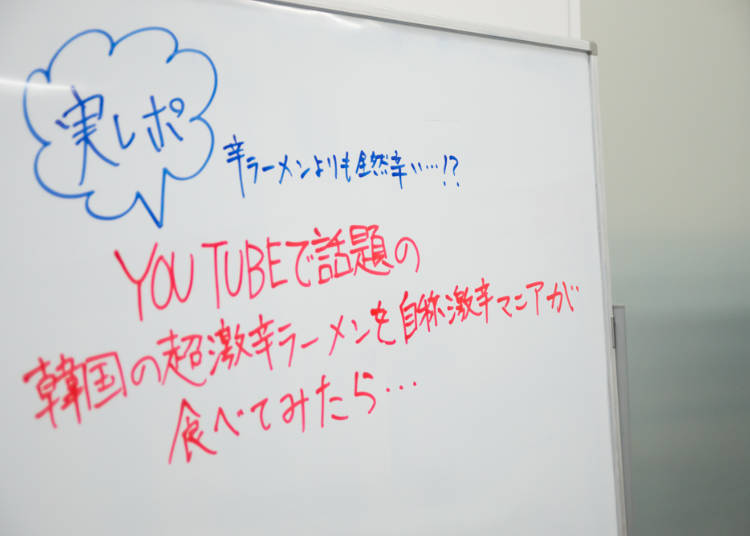 実レポ
辛ラーメンよりも全然辛い…!?
YOUTUBEで話題の
韓国の超激辛ラーメンを自称激辛マニアが
食べてみたら…